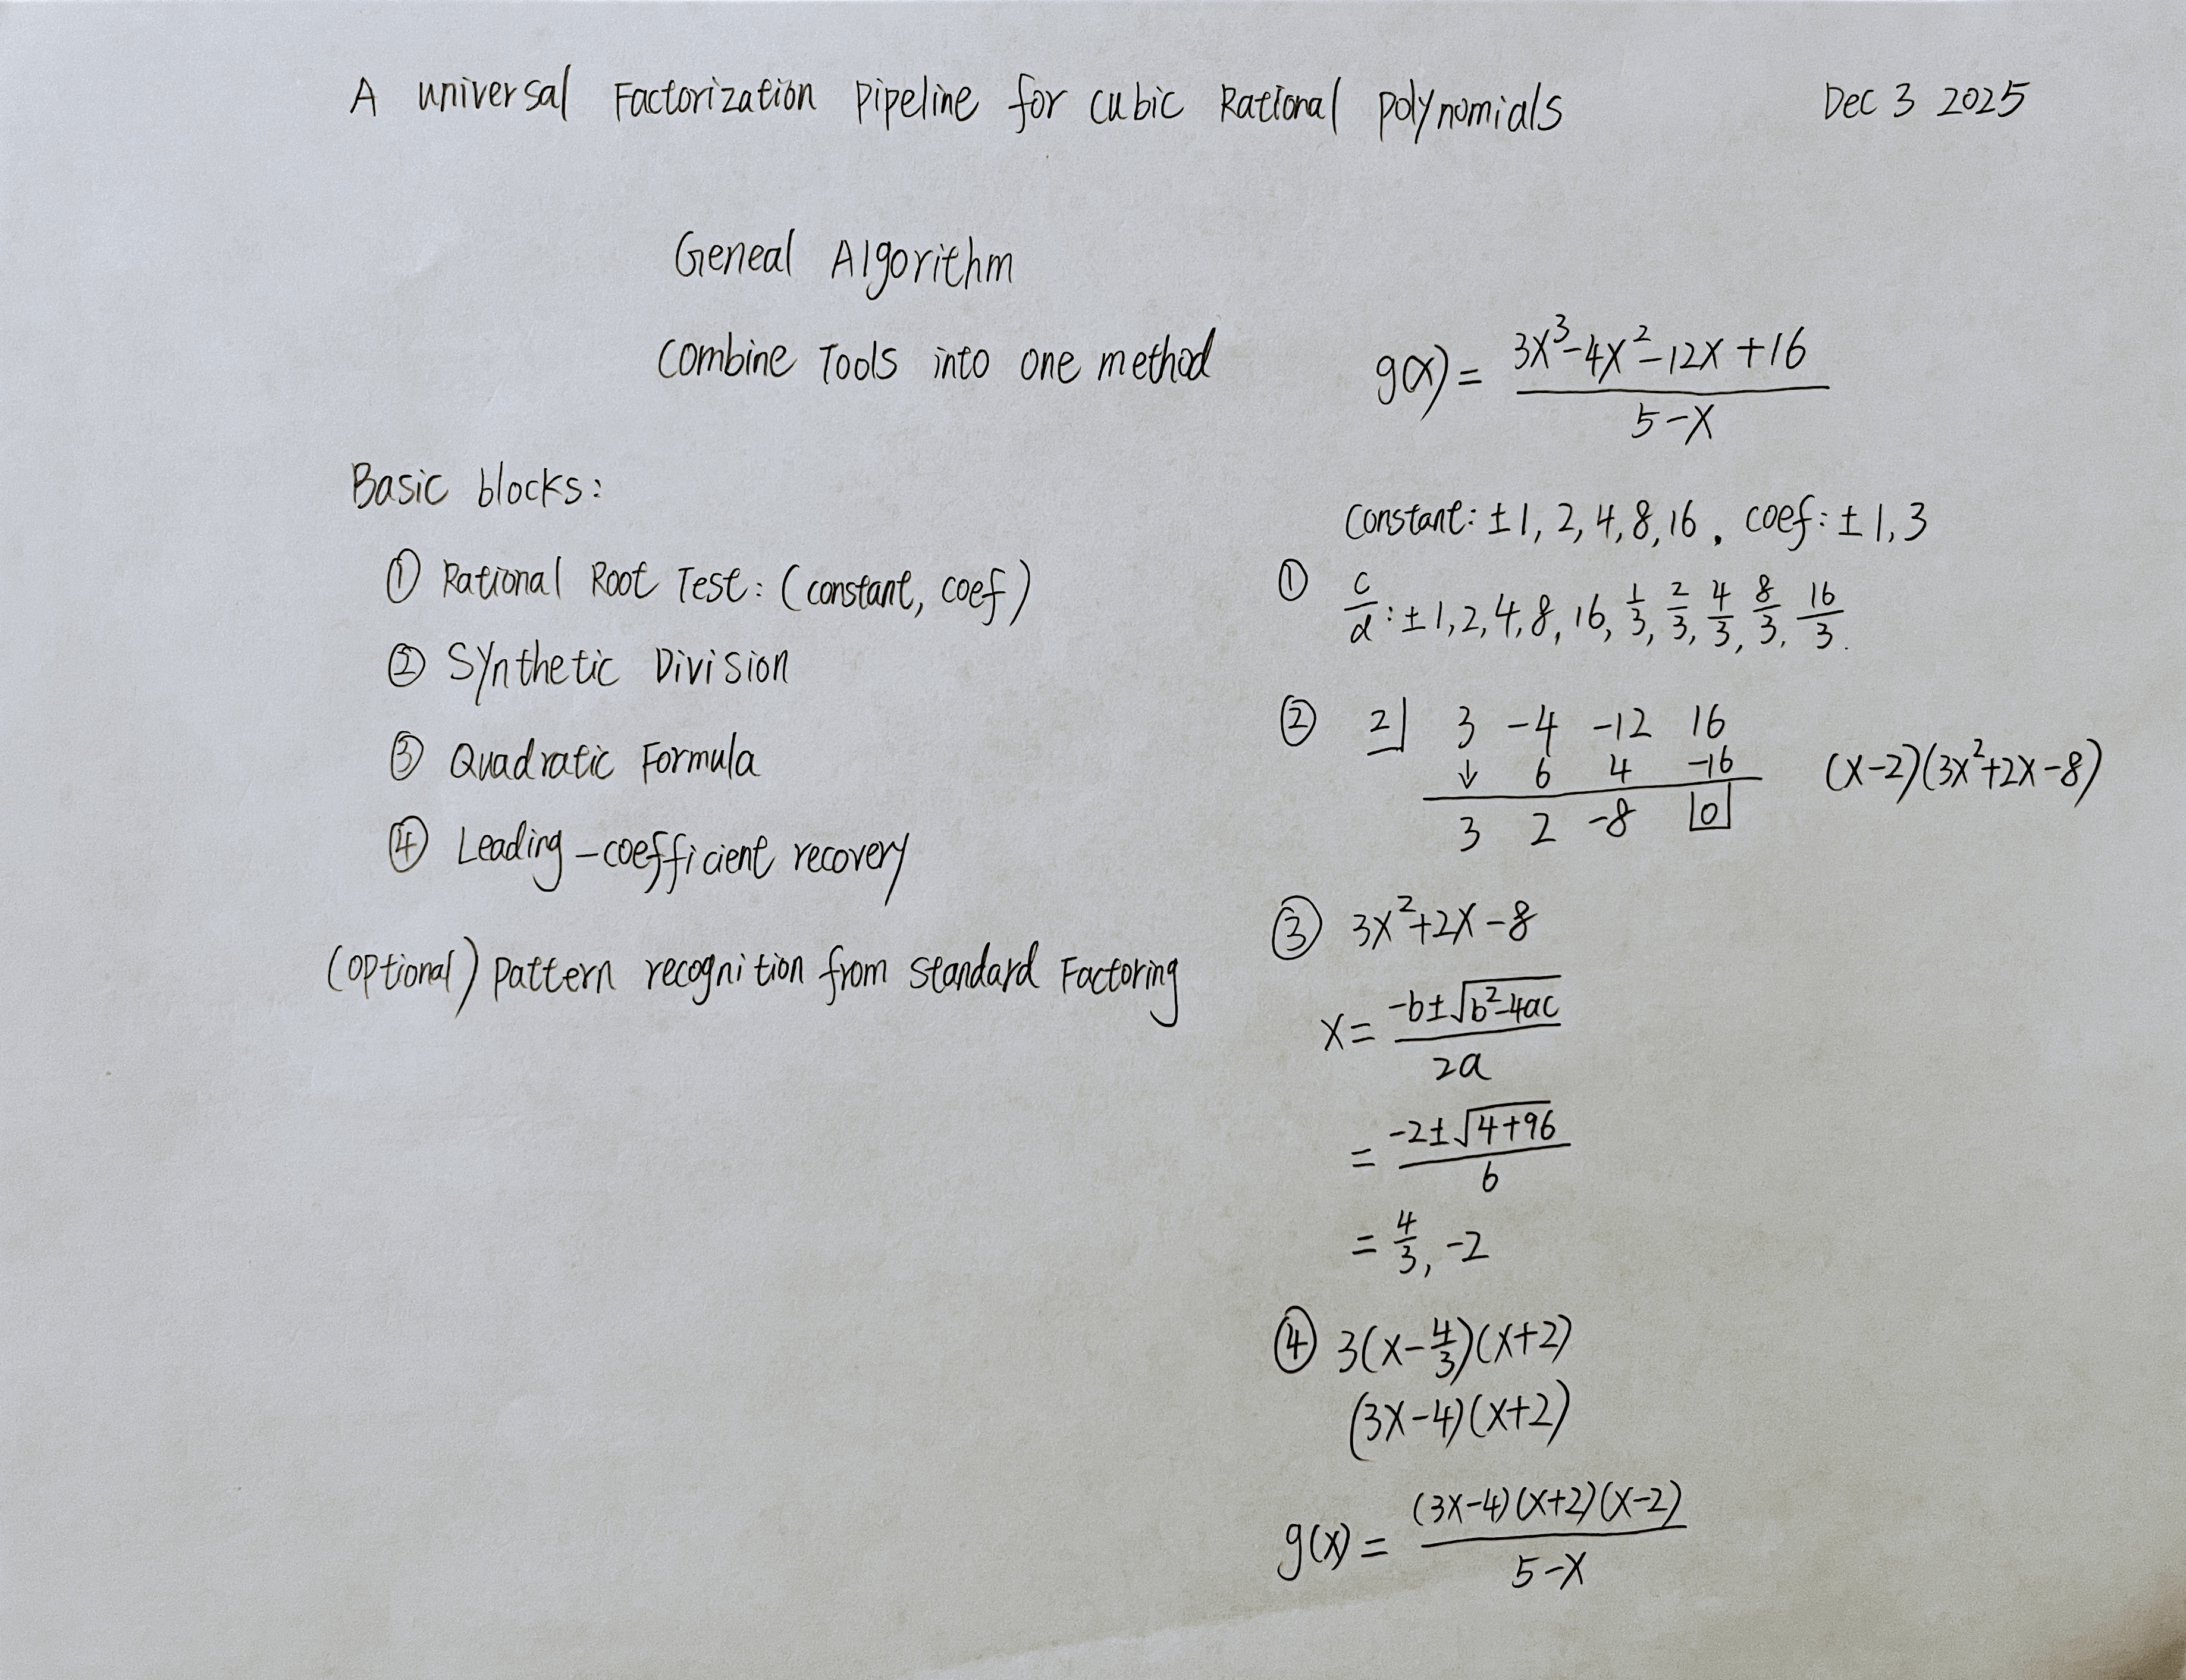 A universal Factorization Pipeline for cubic Rational polynomials Dec 3 2025
Geneal Algorithm
Combine Tools into one method
Basic blocks:
① Rational Root Test: (constant, coef)
② Synthetic Division
③ Quadratic Formula
④ Leading-coefficient recovery
(optional) pattern recognition from standard Factoring
g(x) = (3x³-4x²-12x+16)/(5-x)
Constant: ±1, 2, 4, 8, 16, coef: ±1, 3
① c/d: ±1, 2, 4, 8, 16, 1/3, 2/3, 4/3, 8/3, 16/3.
② 2| 3 -4 -12 16
↓ 6 4 -16 (x-2)(3x²+2x-8)
3 2 -8 0
③ 3x²+2x-8
x = (-b±√(b²-4ac))/(2a)
= (-2±√(4+96))/6
= 4/3, -2
④ 3(x-4/3)(x+2)
(3x-4)(x+2)
g(x) = ((3x-4)(x+2)(x-2))/(5-x)